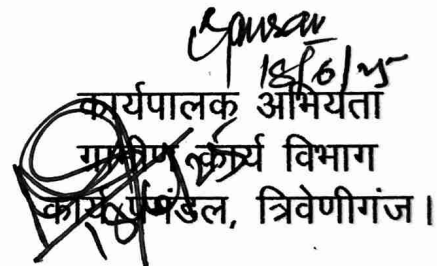 18/6/25
कार्यपालक अभियंता
ग्रामीण कार्य विभाग
कार्य प्रमंडल, त्रिवेणीगंज।